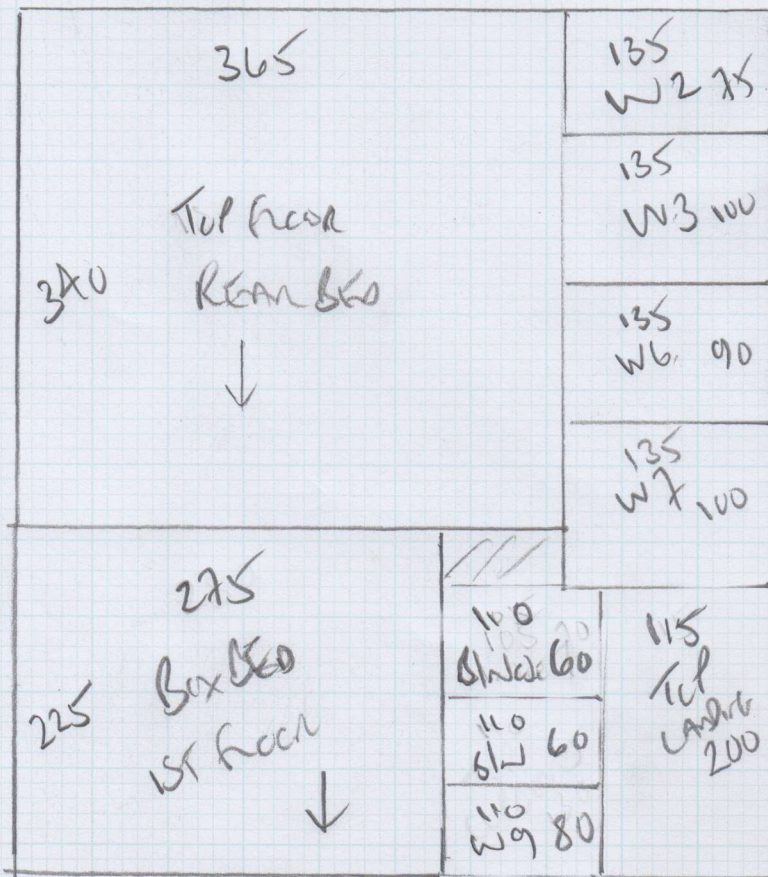 365
340
TOP FLOOR
REAR BED
135
W2 75
135
W3 100
135
W6 90
135
W7 100
275
225
BOX BED
1ST FLOOR
110
60
110
S/W 60
110
W9 80
115
TOP
LANDING
200